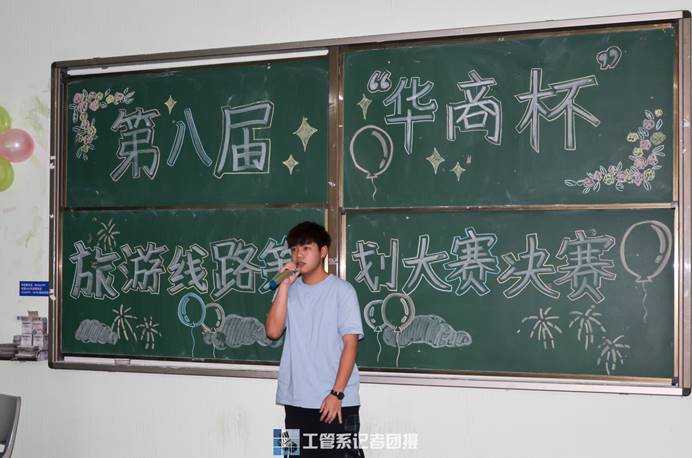 第八届“华商杯”
旅游线路策划大赛决赛
工管系记者团摄